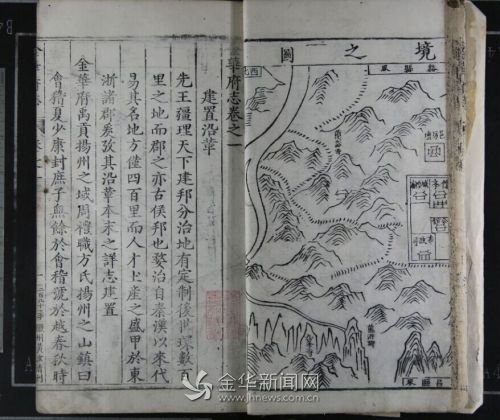 境之圖
金華府志卷之一
建置沿革
先王疆理天下建邦分治地有定制後世環數百
里之地而郡之亦古侯邦也婺治自秦漢以來代
易其名地方僅四百里而人才土產之盛甲於東
浙諸郡爰攷其沿革本末之詳志建置
金華府禹貢揚州之域周禮職方氏揚州之山鎮曰
會稽夏少康封庶子無餘於會稽號於越春秋時
金华新闻网
www.jhnews.com.cn